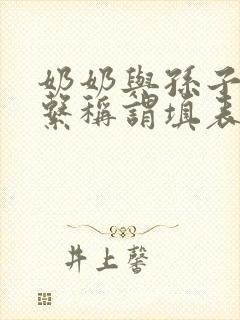 奶奶與孫子
繫稱謂填表
井上馨